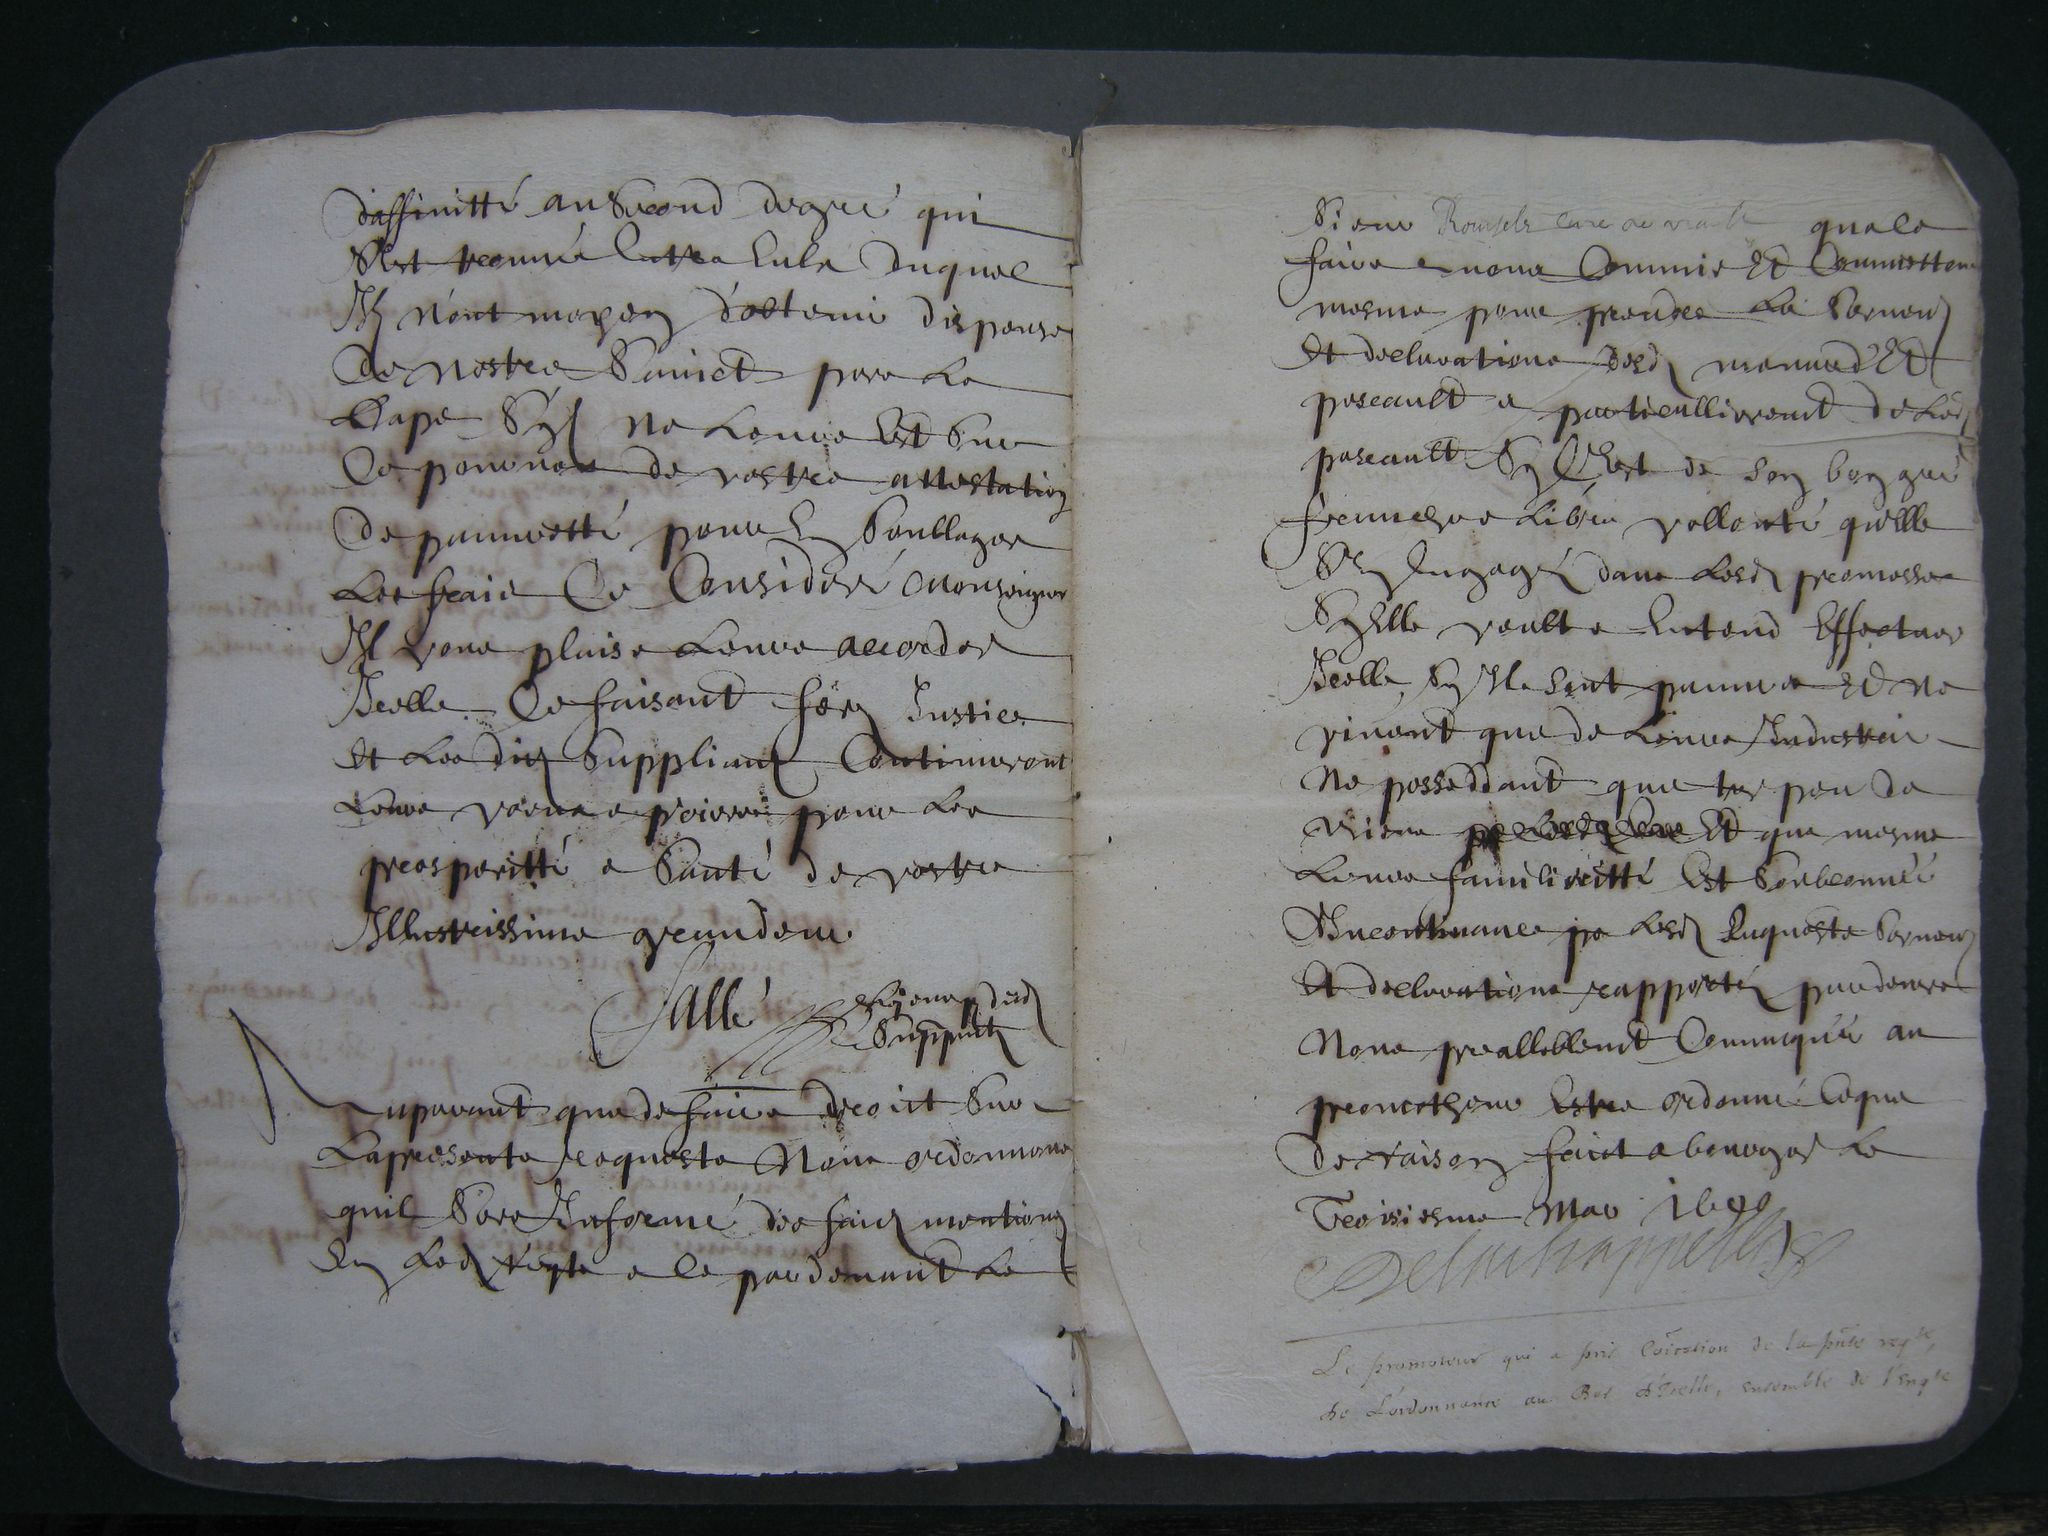 d'affinitté au Second degré qui
S'est trouvé Entre Eulx duquel
Ilz n'ont moyen d'obtenir dispense
De nostre Sainct pere Le
Pape S'yl ne Leure Est Sur
Ce pourveu de vostre attestation
De pauvretté pour En Soullager
Les fraiz Ce Consideré Monseigneur
Il vous plaise Leure accorder
Icelle Ce faisant fers Justice
Et Les ditz Supplians Continueront
Leurs voeux e prieres pour Les
prosperitté e Santé de vostre
Illustrissime grandeur
Sallé
Suppntz
Auparant que de faire droict Sur
La presente requeste Nous ordonnons
quil Sera Informé des faitz mentionez
En Lad Reqte e ce pardevant Le
Sieur Roussele curé de que ce
faire avons Commis Et Commettons
mesme pour prendre Le Serment
Et declarations desd menard Et
pascault e particullierement de Lad
pascault Sy C'est de son bon gré
franche e Libre vollonté qu'elle
S'est Engagéz dans Lesd promesses
Sy Elle veult e Entend Effectuer
Icelle, Sy Ils sont pauvres Et ne
vivent que de Leure Industrie
Ne posseddant que tres peu de
Biens Et que mesme
Leure familiaritté Est Soubconnéé
D'Incontinance pr Lesd Enqueste Serment
Et declarations rapportéz pardevers
Nous preallablemt Communiquéé au
promotheur Estre ordonné Ceque
De raison faict a bourges Le
Troisiesme Mar
Delachappelle
Le promoteur qui a pris Coication de la pnte reqte,
de L'ordonnance au Bas d'Icelle, ensemble de l'Enqte